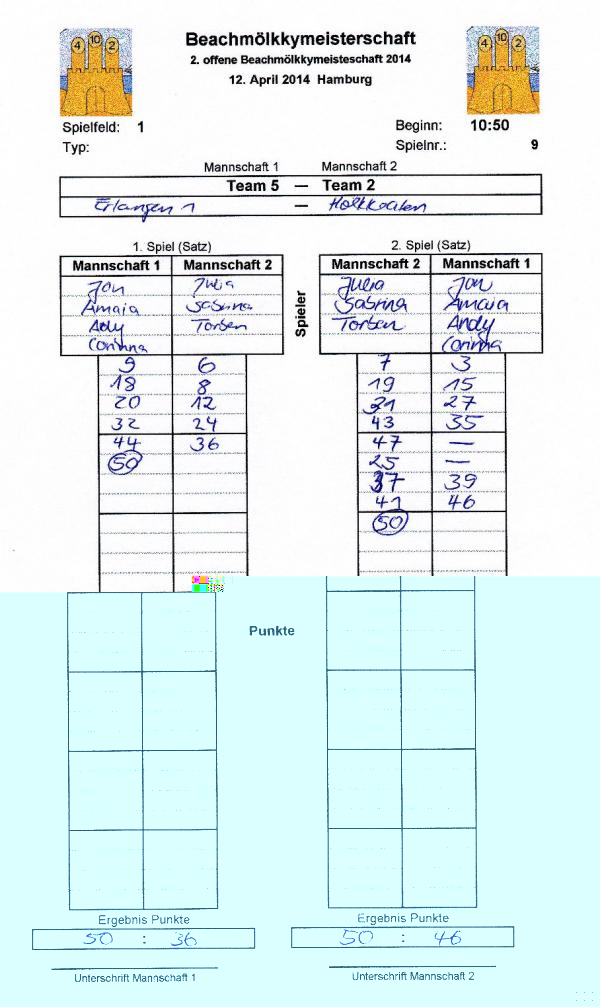 4 10 2
Beachmölkkymeisterschaft
4 10 2
2. offene Beachmölkkymeisteschaft 2014
12. April 2014 Hamburg
Spielfeld: 1
Beginn: 10:50
Typ:
Spielnr.: 9
Mannschaft 1 Mannschaft 2
Team 5 — Team 2
Erlangen 1 —
1. Spiel (Satz) 2. Spiel (Satz)
Mannschaft 1 Mannschaft 2 Mannschaft 2 Mannschaft 1
Jon Julia Julia Jon
Amaia Sabrina Sabrina Amaia
Andy Torben Torben Andy
Corinna Corinna
Spieler
9 6 7 3
18 8 19 15
20 12 31 27
32 24 43 35
44 36 47 —
50 25 —
37 39
41 46
50
Punkte
Ergebnis Punkte Ergebnis Punkte
50 : 36 50 : 46
Unterschrift Mannschaft 1 Unterschrift Mannschaft 2